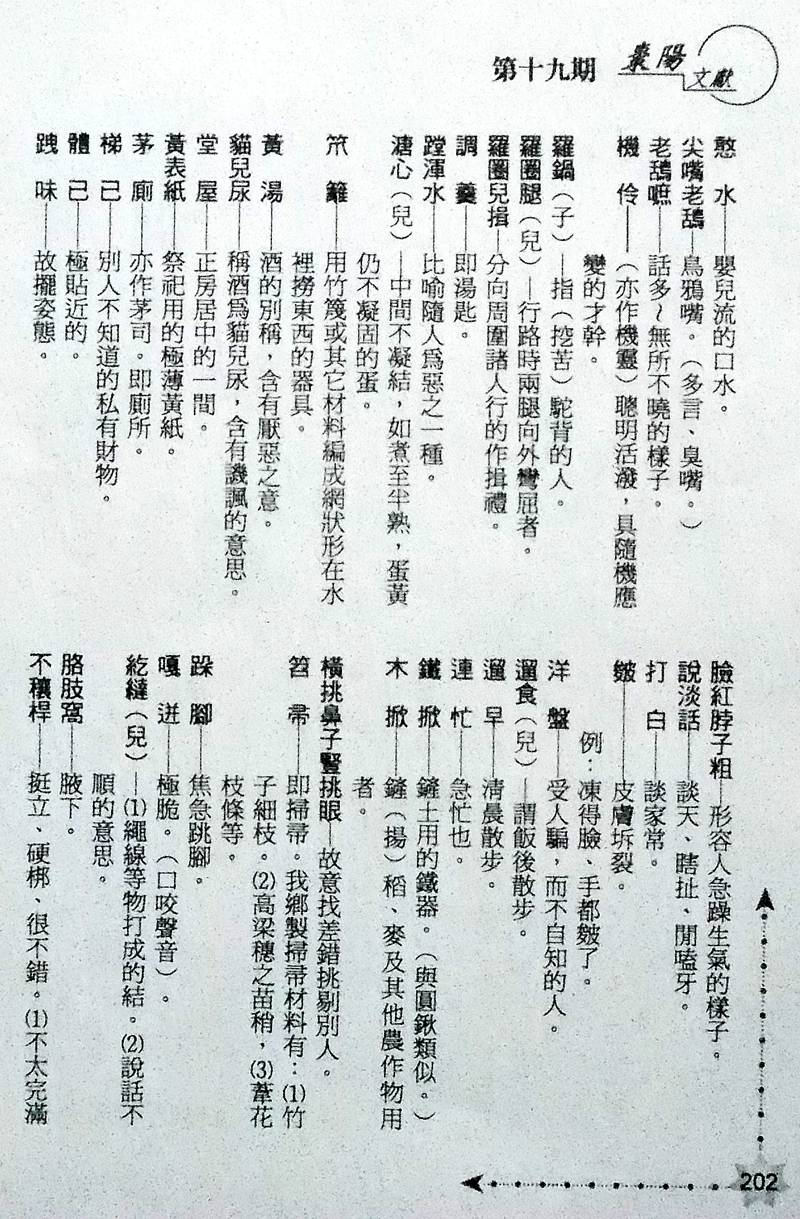 第十九期 棗陽文獻
憨水——嬰兒流的口水。
尖嘴老鴰——烏鴉嘴。（多言、臭嘴。）
老鴰嗻——話多~無所不曉的樣子。
機伶——（亦作機靈）聰明活潑，具隨機應
變的才幹。
羅鍋（子）——指（挖苦）駝背的人。
羅圈腿（兒）——行路時兩腿向外彎屈者。
羅圈兒揖——分向周圍諸人行的作揖禮。
調羹——即湯匙。
蹚渾水——比喻隨人為惡之一種。
溏心（兒）——中間不凝結，如煮至半熟，蛋黃
仍不凝固的蛋。
笊籬——用竹篾或其它材料編成網狀形在水
裡撈東西的器具。
黃湯——酒的別稱，含有厭惡之意。
貓兒尿——稱酒為貓兒尿，含有譏諷的意思。
堂屋——正房居中的一間。
黃表紙——祭祀用的極薄黃紙。
茅廁——亦作茅司。即廁所。
梯己——別人不知道的私有財物。
體己——極貼近的。
跩味——故擺姿態。
臉紅脖子粗——形容人急躁生氣的樣子。
說淡話——談天、瞎扯、閒嗑牙。
打白——談家常。
皴——皮膚坼裂。
例：凍得臉、手都皴了。
洋盤——受人騙，而不自知的人。
遛食（兒）——謂飯後散步。
遛早——清晨散步。
連忙——急忙也。
鐵掀——鏟土用的鐵器。（與圓鍬類似。）
木掀——鏟（揚）稻、麥及其他農作物用
者。
橫挑鼻子豎挑眼——故意找差錯挑剔別人。
笤帚——即掃帚。我鄉製掃帚材料有：⑴竹
子細枝。⑵高粱穗之苗稍，⑶葦花
枝條等。
跺腳——焦急跳腳。
嘎迸——極脆。（口咬聲音）。
紇繨（兒）——⑴繩線等物打成的結。⑵說話不
順的意思。
胳肢窩——腋下。
不穰桿——挺立、硬梆、很不錯。⑴不太完滿
202